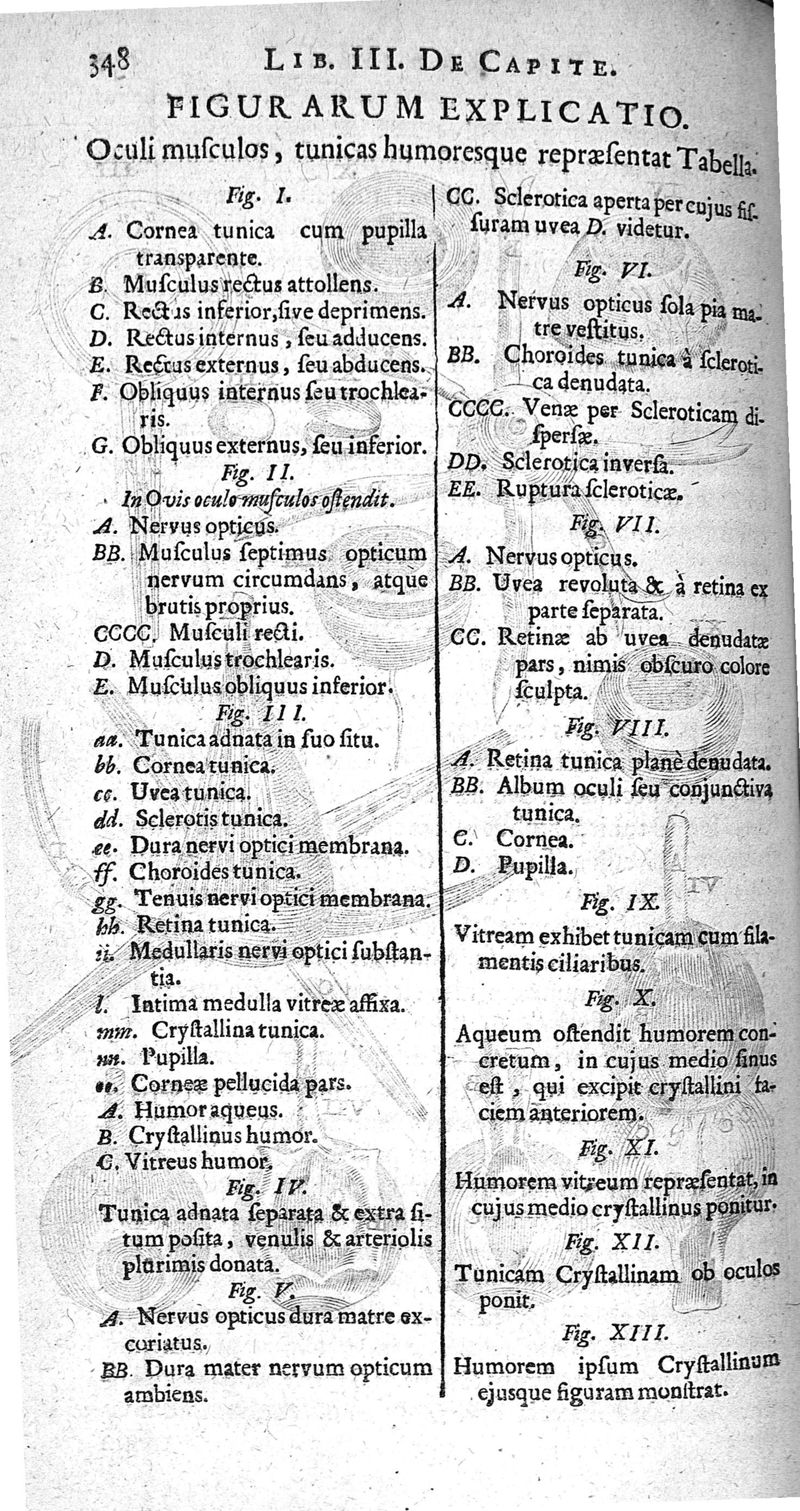 348 LIB. III. DE CAPITE.
FIGURARUM EXPLICATIO.
Oculi muſculos, tunicas humoresque repræſentat Tabella.
Fig. I.
A. Cornea tunica cum pupilla
transparente.
B. Muſculus rectus attollens.
C. Rectus inferior, ſive deprimens.
D. Rectus internus, ſeu adducens.
E. Rectus externus, ſeu abducens.
F. Obliquus internus ſeu trochlea-
ris.
G. Obliquus externus, ſeu inferior.
Fig. II.
In Ovis oculo muſculos oſtendit.
A. Nervus opticus.
BB. Muſculus ſeptimus opticum
nervum circumdans, atque
brutis proprius.
CCCC. Muſculi recti.
D. Muſculus trochlearis.
E. Muſculus obliquus inferior.
Fig. III.
aa. Tunica adnata in ſuo ſitu.
bb. Cornea tunica.
cc. Uvea tunica.
dd. Sclerotis tunica.
ee. Dura nervi optici membrana.
ff. Choroides tunica.
gg. Tenuis nervi optici membrana.
hh. Retina tunica.
ii. Medullaris nervi optici ſubſtan-
tia.
l. Intima medulla vitreæ affixa.
mm. Cryſtallina tunica.
nn. Pupilla.
oo. Corneæ pellucida pars.
A. Humor aqueus.
B. Cryſtallinus humor.
C. Vitreus humor.
Fig. IV.
Tunica adnata ſeparata & extra ſi-
tum poſita, venulis & arteriolis
plurimis donata.
Fig. V.
A. Nervus opticus dura matre ex-
coriatus.
BB. Dura mater nervum opticum
ambiens.
CC. Sclerotica aperta per cujus fiſ-
ſuram uvea D. videtur.
Fig. VI.
A. Nervus opticus ſola pia ma-
tre veſtitus.
BB. Choroides tunica à ſcleroti-
ca denudata.
CCCC. Venæ per Scleroticam di-
ſperſæ.
DD. Sclerotica inverſa.
EE. Ruptura ſcleroticæ.
Fig. VII.
A. Nervus opticus.
BB. Uvea revoluta & à retina ex
parte ſeparata.
CC. Retinæ ab uvea denudatæ
pars, nimis obſcuro colore
ſculpta.
Fig. VIII.
A. Retina tunica planè denudata.
BB. Album oculi ſeu conjunctiva
tunica.
C. Cornea.
D. Pupilla.
Fig. IX.
Vitream exhibet tunicam cum fila-
mentis ciliaribus.
Fig. X.
Aqueum oſtendit humorem con-
cretum, in cujus medio ſinus
eſt, qui excipit cryſtallini fa-
ciem anteriorem.
Fig. XI.
Humorem vitreum repræſentat, in
cujus medio cryſtallinus ponitur.
Fig. XII.
Tunicam Cryſtallinam ob oculos
ponit.
Fig. XIII.
Humorem ipſum Cryſtallinum
ejusque figuram monſtrat.